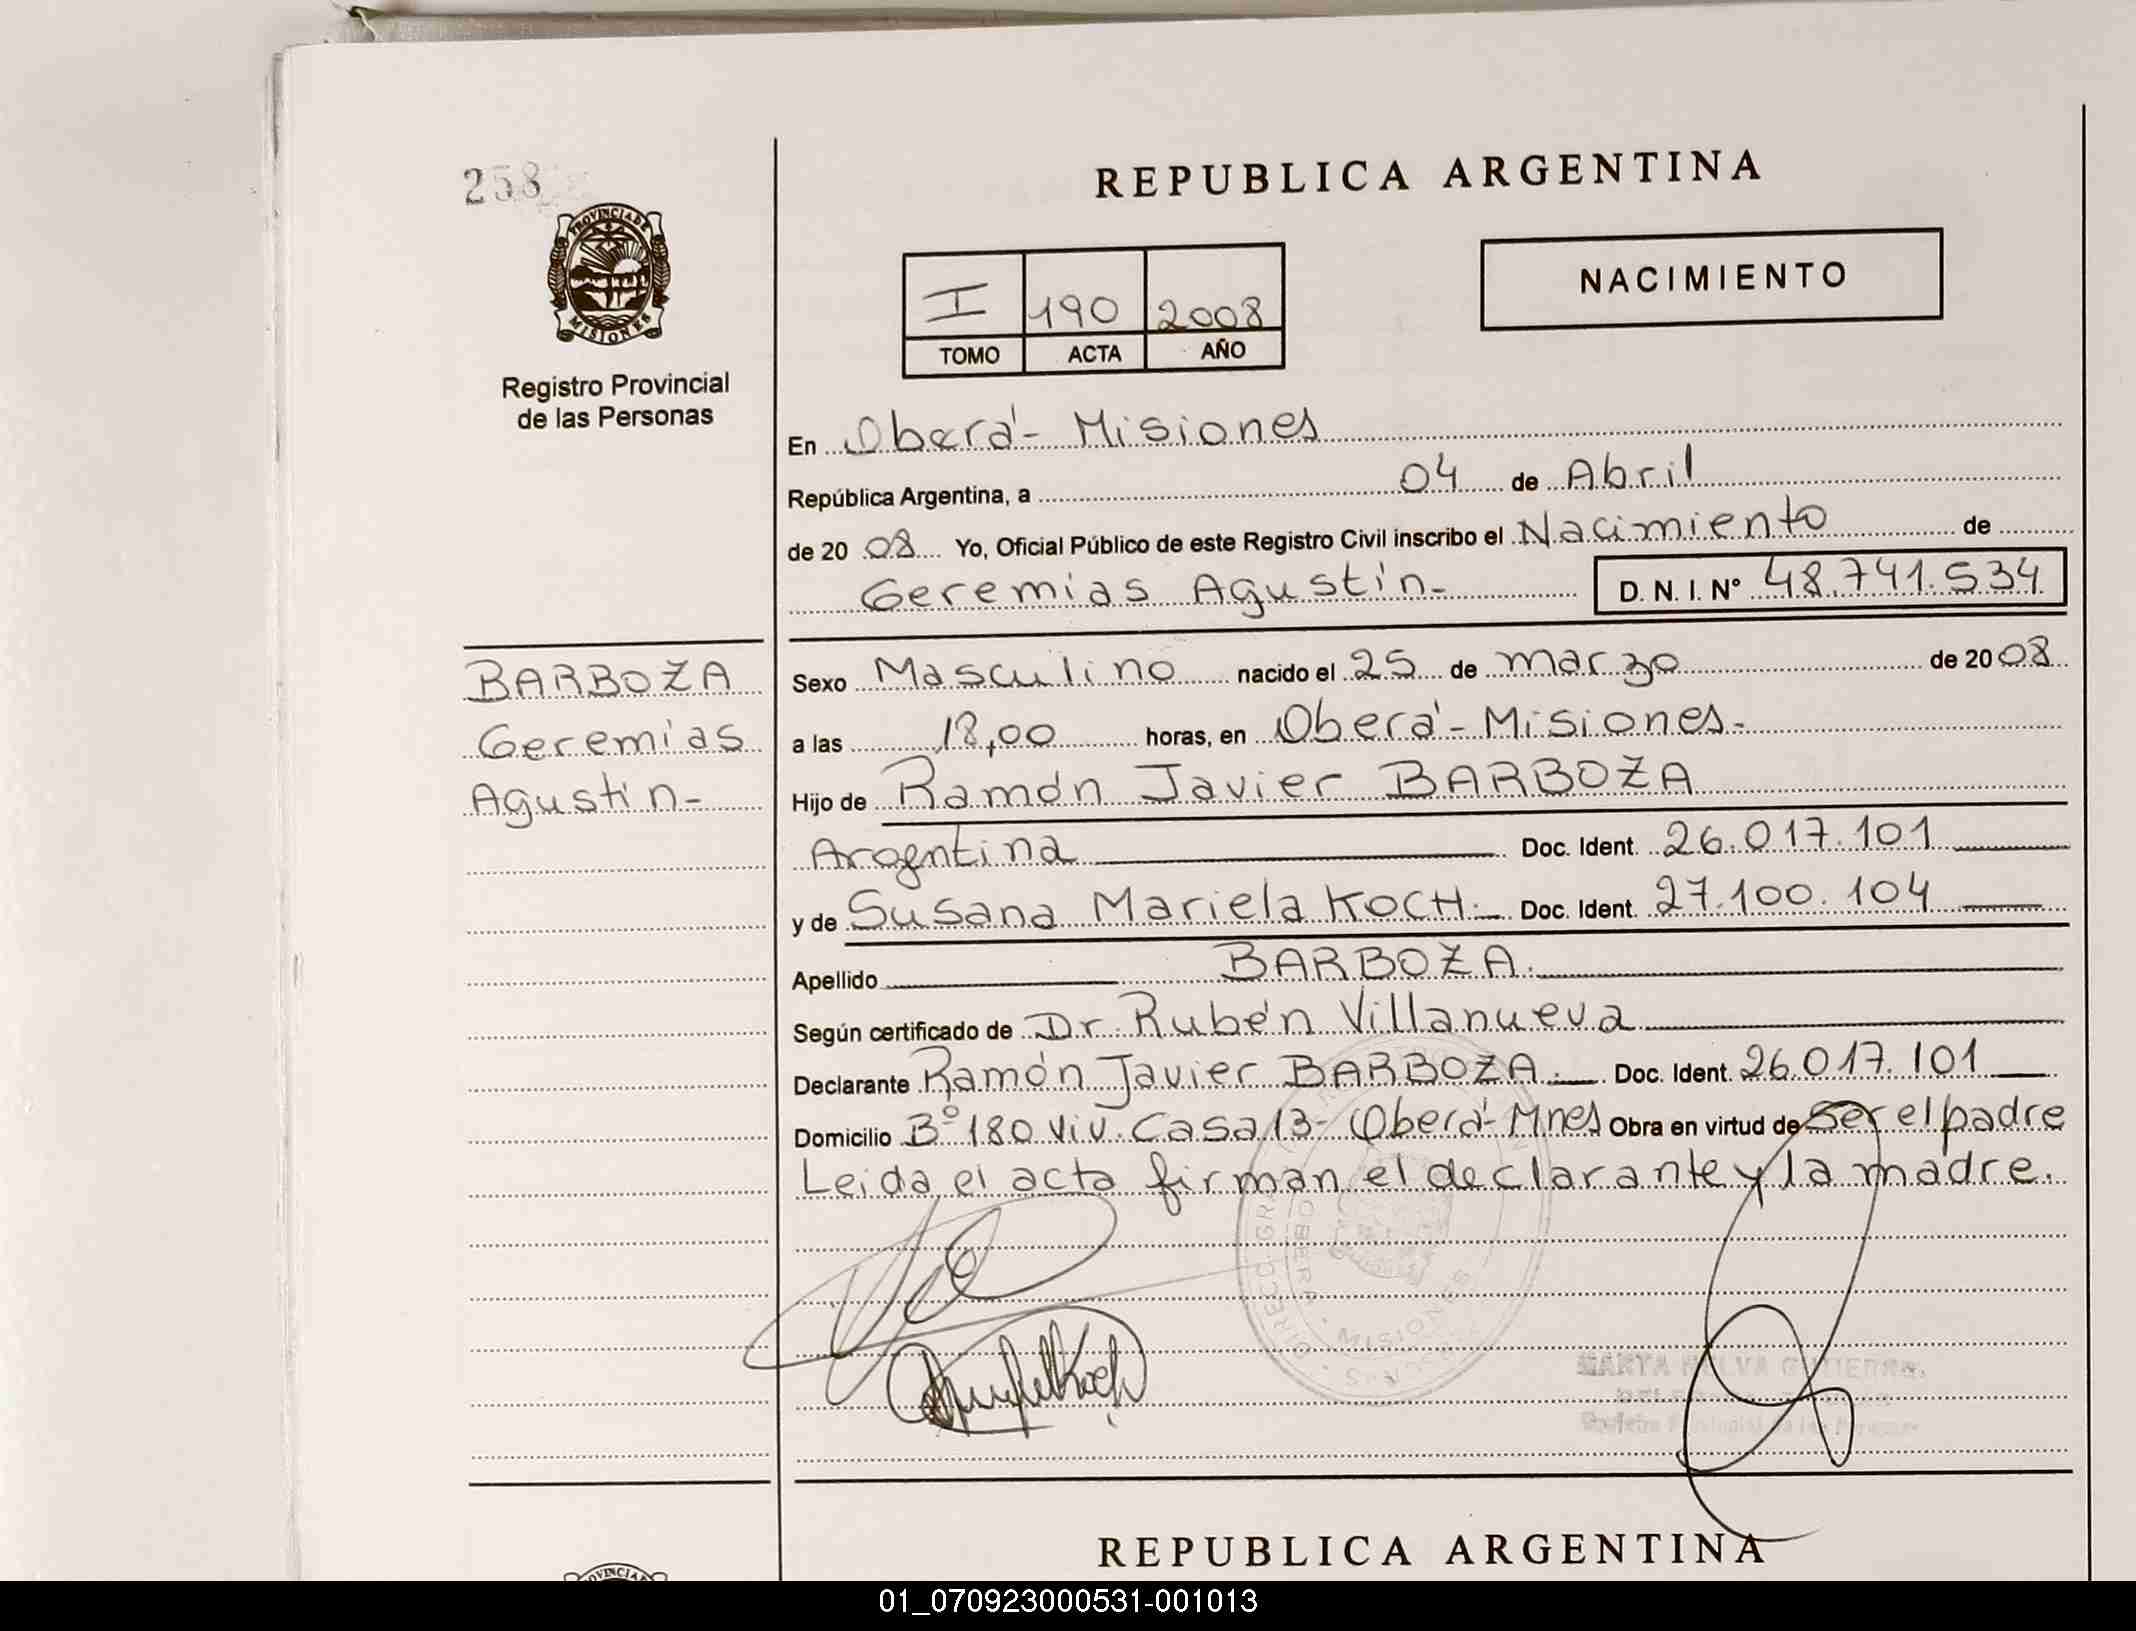 258
PROVINCIA DE
MISIONES
Registro Provincial
de las Personas
REPUBLICA ARGENTINA
I 190 2008
TOMO ACTA AÑO
NACIMIENTO
En Oberá - Misiones
República Argentina, a 04 de Abril
de 20 08 Yo, Oficial Público de este Registro Civil inscribo el Nacimiento de
Geremias Agustín- D. N. I. N° 48.741.534
BARBOZA
Geremías
Agustín-
Sexo Masculino nacido el 25 de marzo de 20 08
a las 18,00 horas, en Oberá - Misiones-
Hijo de Ramón Javier BARBOZA
Argentina Doc. Ident. 26.017.101
y de Susana Mariela KOCH- Doc. Ident. 27.100.104
Apellido BARBOZA.
Según certificado de Dr. Rubén Villanueva
Declarante Ramón Javier BARBOZA. Doc. Ident. 26.017.101
Domicilio B° 180 Viv. Casa 13- Oberá- Mnes Obra en virtud de Ser el padre
Leida el acta firman el declarante y la madre.
OBERA - MISIONES
REPUBLICA ARGENTINA
01_070923000531-001013